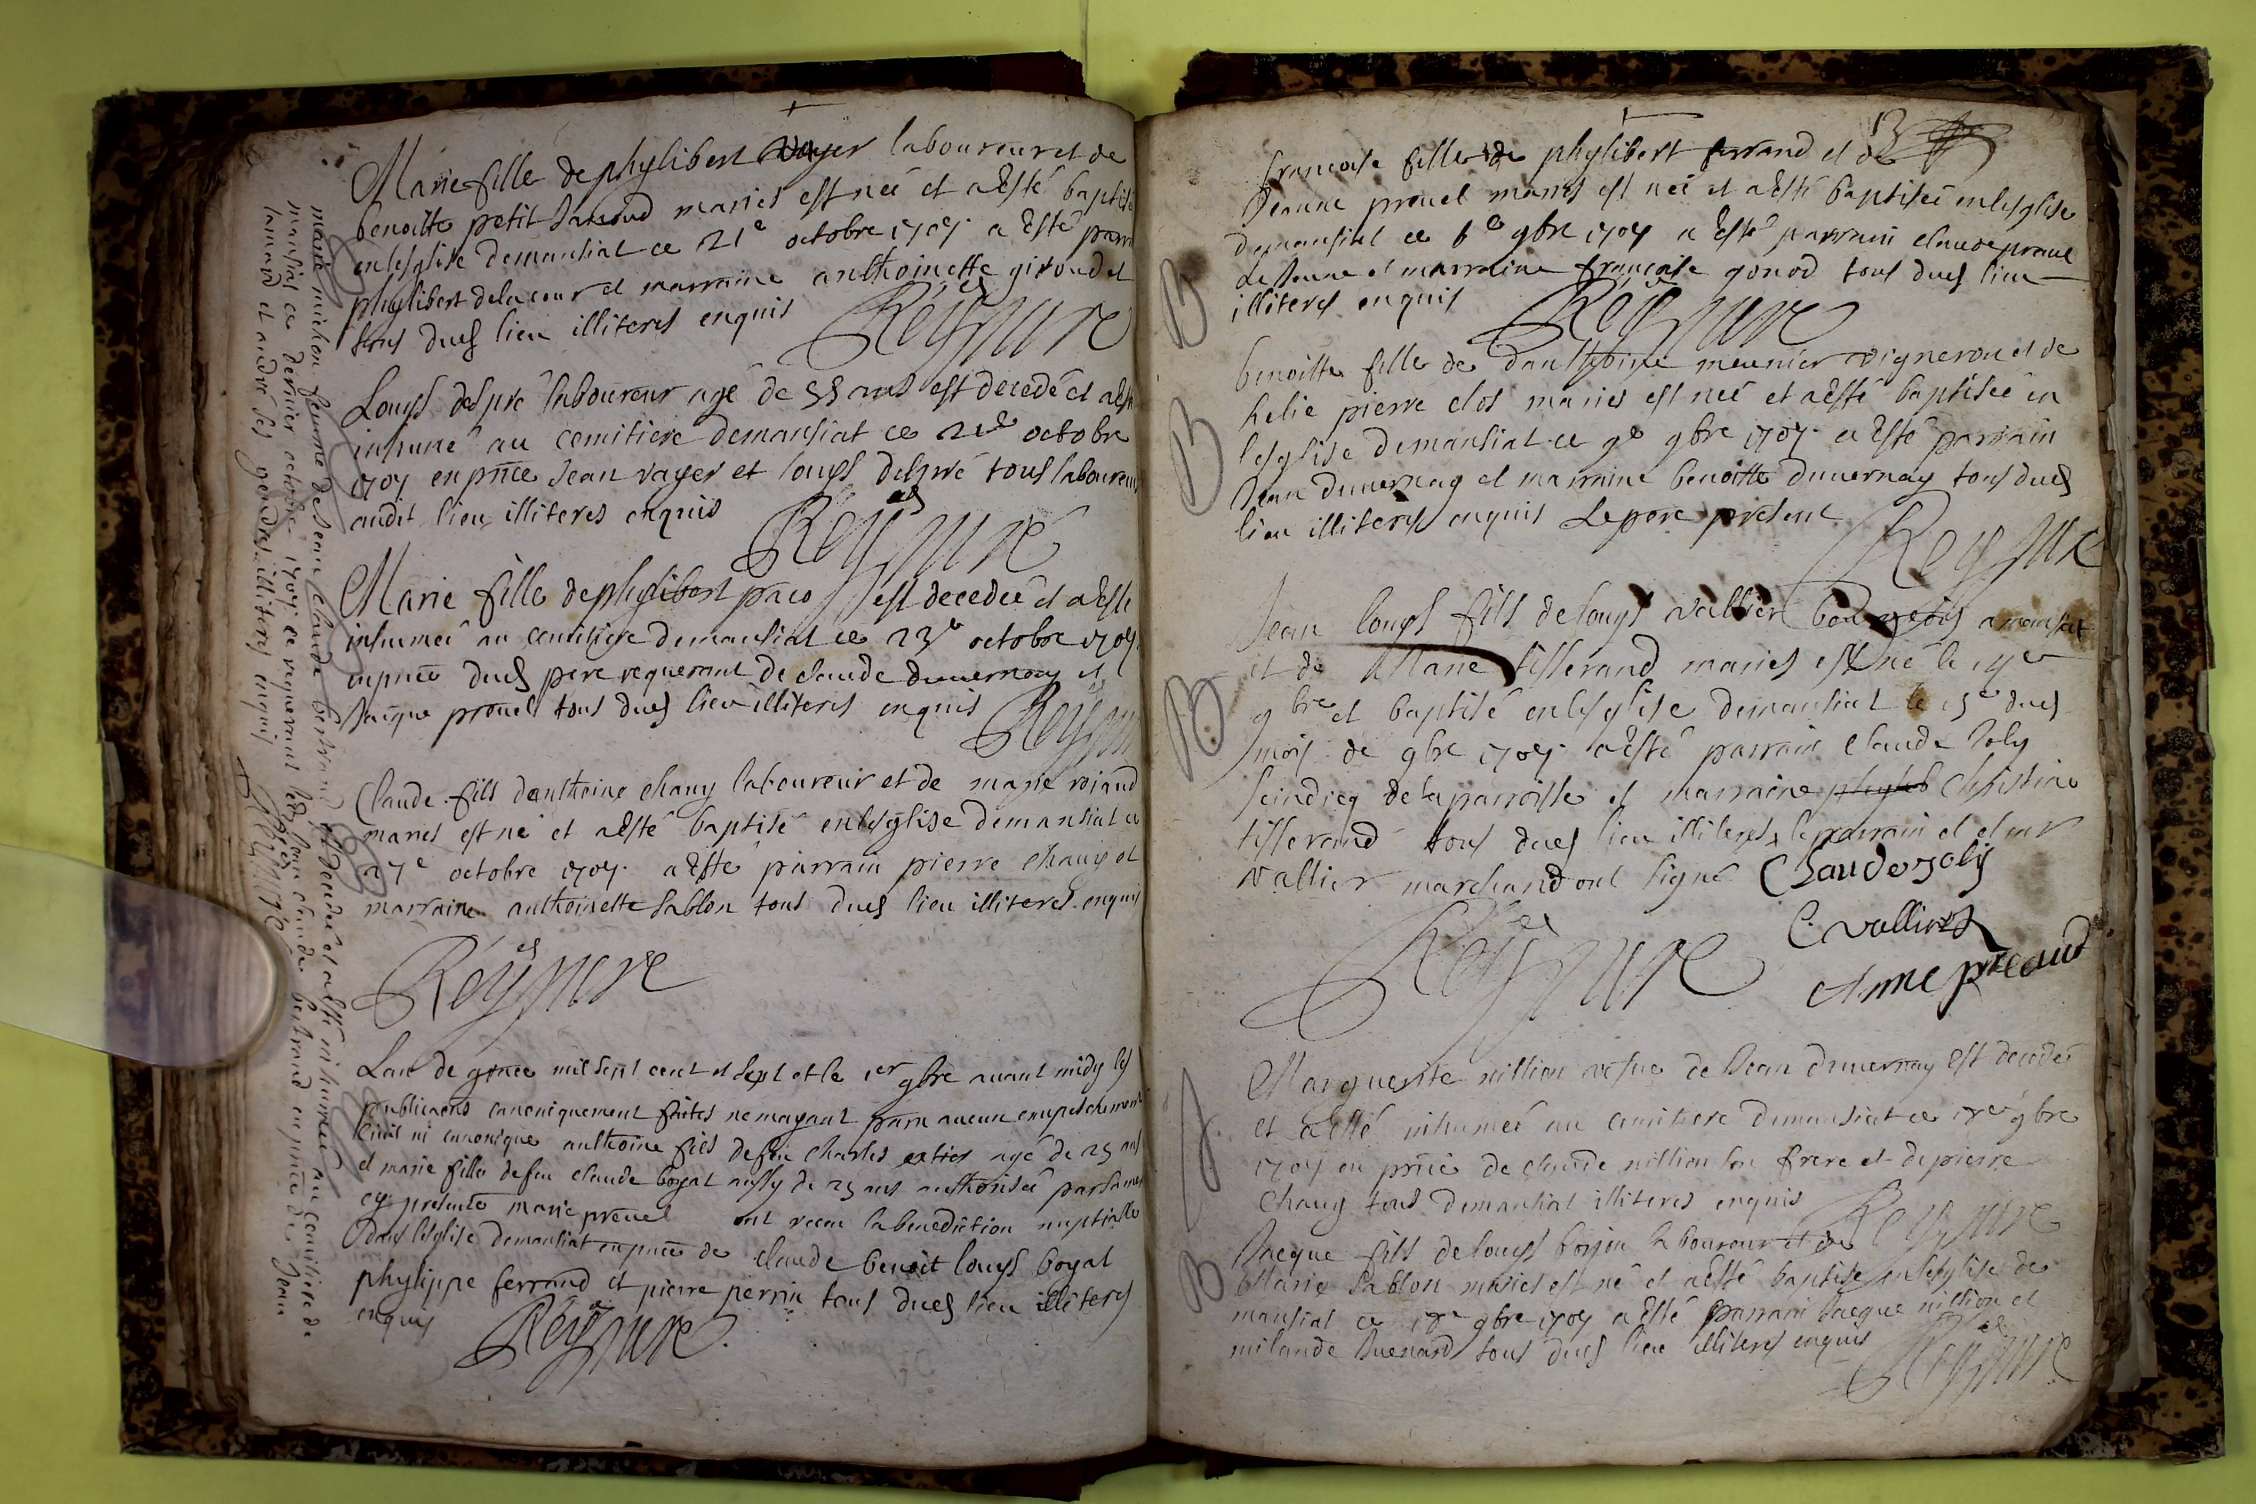 Marie fille de phylibert vayer laboureur et de
benoitte petit Janoud mariés est neé et a Esté baptisé
en lesglise demansiat ce 21e octobre 1707 a Esté parra
phylibert delacour et marraine anthoinette giroud et
tous dues lieu illiteres enquis
Reÿ cure
Louys despré laboureur agé de 55 ans est decedé et a esté
inhumé au cemitiere demansiat ce 21e octobre
1707 en pnce Jean vayer et louys despré tous laboureur
audit lieu illiteres enquis
Reÿ cure
Marie fille de phylibert paco est decedeé et a Esté
inhumeé au cemitiere demansiat ce 23e octobre 1707
en pnce dues pere requerant de claude duuernay et
Jacque prouel tous dues lieu illiteres enquis
Reÿ cure
Claude fils danthoine chany laboureur et de marie roiand
mariés est né et a Esté baptisé en lesglise demansiat ce
27e octobre 1707 a Esté parrain pierre chany et
marraine anthoinette sablon tous dues lieu illiteres enquis
Reÿ cure
Lan de grace mil sept cent et sept et le 1er 9bre auant midy les
publicaons canoniquement faites ne mayant paru aucun empeschement
Ciuil ni canonique anthoine fils de feu charles agé de 25 ans
et marie fille de feu claude boyat aussy de 25 ans authorisée par sa mere
cy presente marie preuel ont receu la benediction nuptialle
dans lesglise demansiat en pnce de claude benoit louys boyat
phylippe ferrand et pierre perrin tous dues lieu illiteres
enquis
Reÿ cure
marie michon femme de Jean claude bertrand est decedeé et a Esté inhumeé au cemitiere de
mansiat ce dernier octobre 1707 ce requerant led Jean claude bertrand en pnce de Jean
lamard et andré ses gendres illiteres enquis
Reÿ cure
13
francoise fille de phylibert ferrand et de
Jeanne prouel mariés est neé et a Esté baptiseé en lesglise
demansiat ce 6e 9bre 1707 a Esté parrain claude prouel
de Jeanne et marraine francoise gonod tous dues lieu
illiteres enquis
Reÿ cure
B
benoitte fille de danthoine meunier vigneron et de
helie pierre clos mariés est neé et a Esté baptiseé en
lesglise demansiat ce 9e 9bre 1707 a Esté parrain
Jean duuernay et marraine benoitte duuernay tous dues
lieu illiteres enquis Le pere present
Reÿ cure
B
Jean louys fils de louys vallier bourgeois a mansiat
et de Marie tisserand mariés est né le 14e
9bre et baptisé en lesglise demansiat le 15e dues
mois de 9bre 1707 a Esté parrain claude Joly
scindicq de la parroisse et marraine phylib christine
tisserand tous dues lieu illiteres le parrain et
vallier marchand ont signé Claude Joly
C vallier
Reÿ cure
Anne preaud
B
Marguerite nillion vefue de Jean duuernay est decedeé
et a Esté inhumeé au cemitiere demansiat ce 17e 9bre
1707 en pnce de claude nillion son frere et de pierre
chany tous demansiat illiteres enquis
Reÿ cure
Jacque fils de louys boyon laboureur et de
Marie sablon mariés est né et a Esté baptisé en lesglise de
mansiat ce 17e 9bre 1707 a Esté parrain Jacque nillion et
milande Juenard tous dues lieu illiteres enquis
Reÿ cure
B